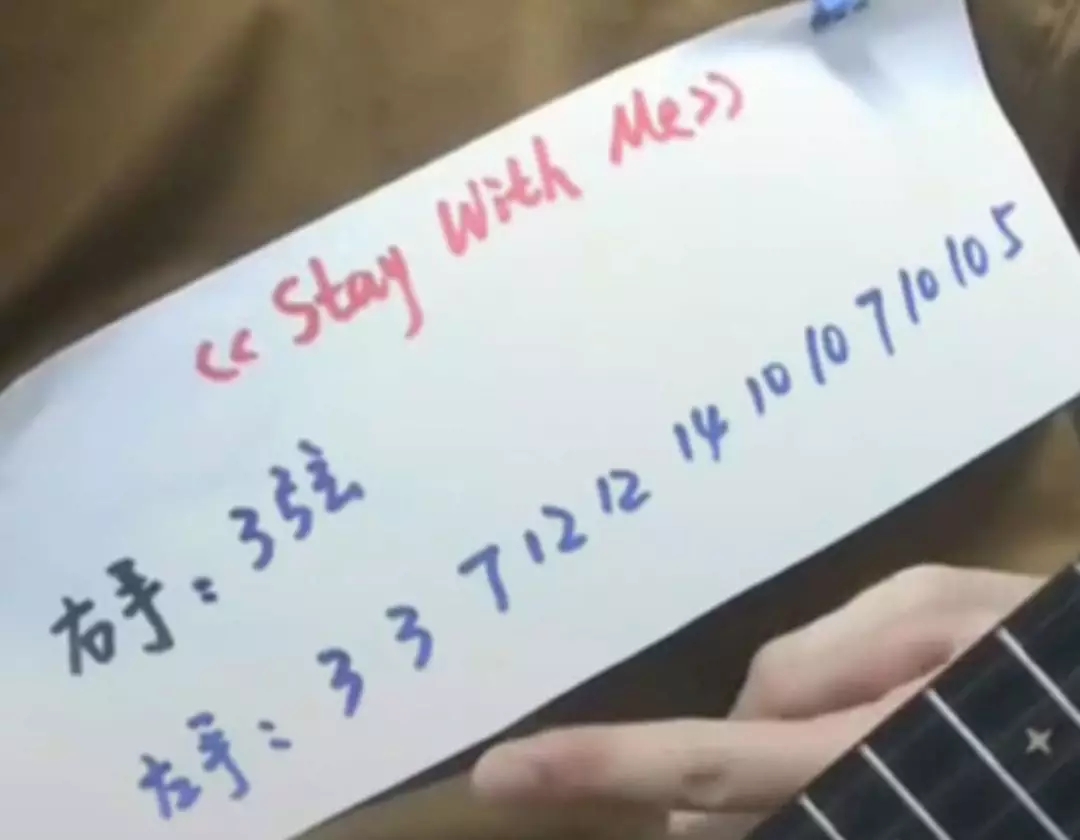 <<Stay With Me>>
右手：3弦
左手：3 3 7 12 12 14 10 10 7 10 10 5